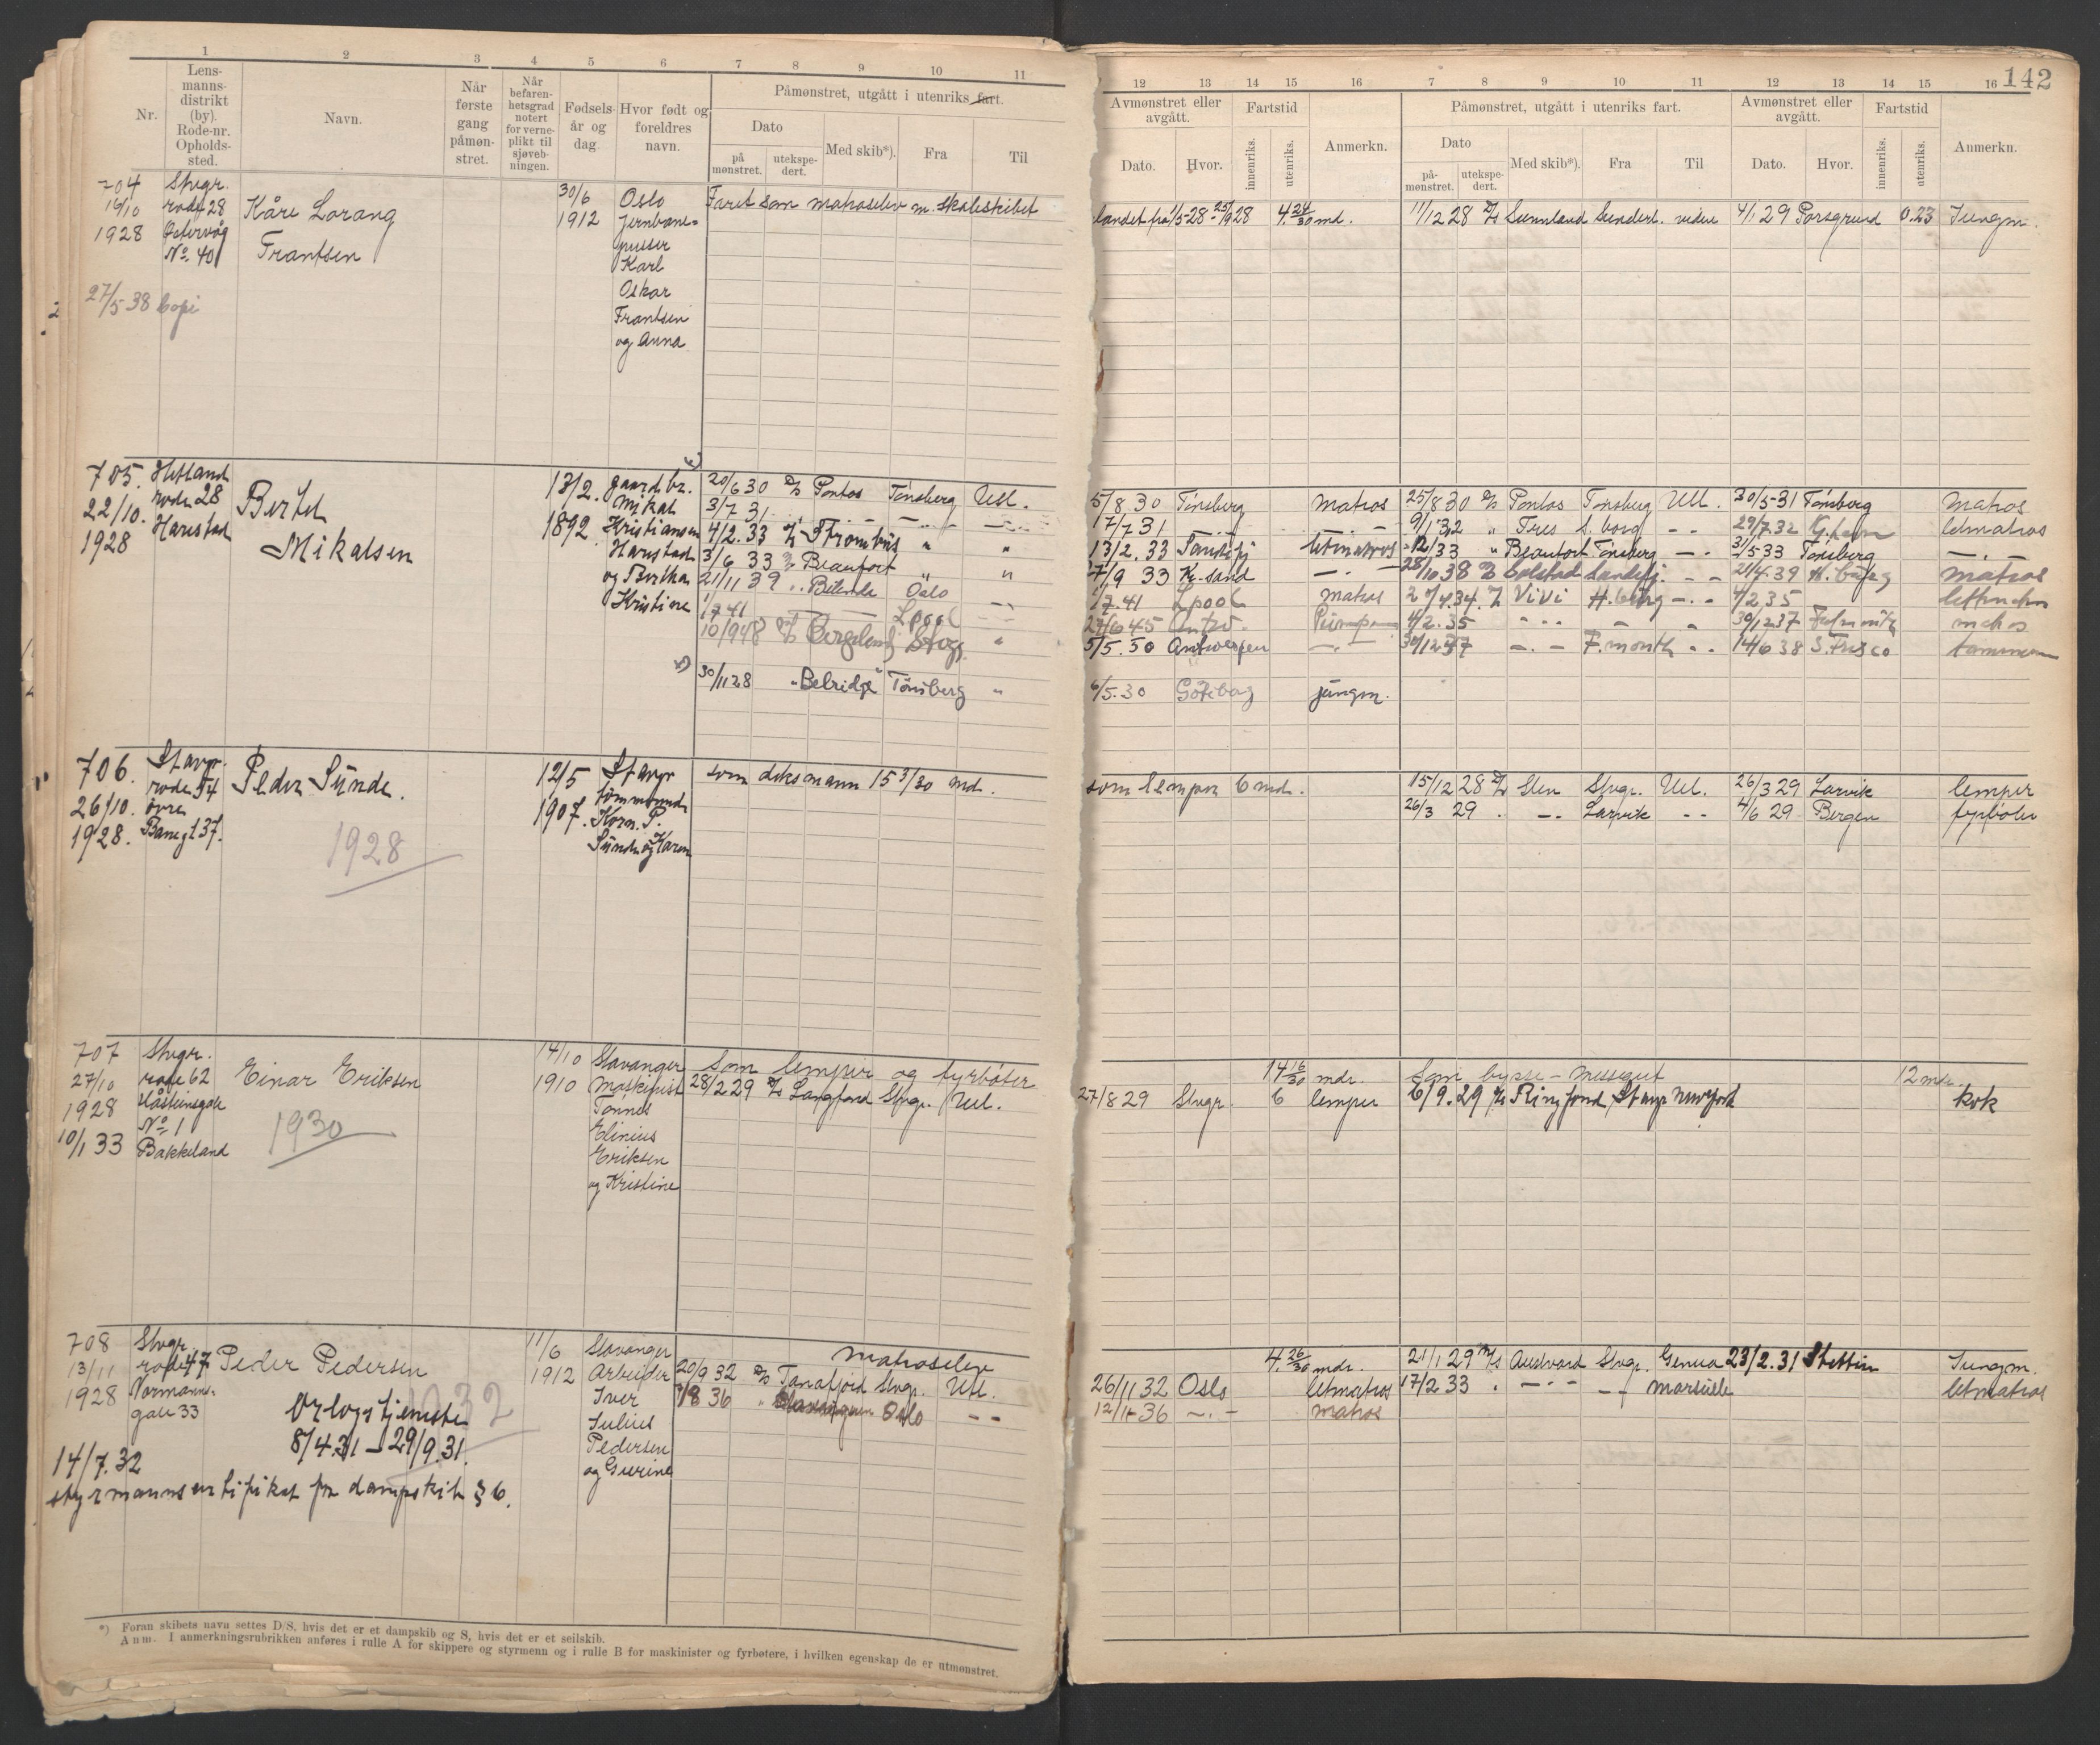 142
1 2 3 4 5 6 7 8 9 10 11
Nr.
Lens-
manns-
distrikt
(by).
Rode-nr.
Opholds-
sted.
Navn.
Når
første
gang
påmøn-
stret.
Når
befaren-
hetsgrad
notert
for verne-
plikt til
sjøveb-
ningen.
Fødsels-
år og
dag.
Hvor født og
foreldres
navn.
Påmønstret, utgått i utenriks fart.
Dato
på
mønstret.
utekspe-
dert.
Med skib*).
Fra
Til
12 13 14 15 16 7 8 9 10 11 12 13 14 15 16
Avmønstret eller
avgått.
Dato.
Hvor.
Fartstid
innenriks.
utenriks.
Anmerkn.
Påmønstret, utgått i utenriks fart.
Dato
på-
mønstret.
utekspe-
dert.
Med skib*).
Fra
Til
Avmønstret eller
avgått.
Dato.
Hvor.
Fartstid
innenriks.
utenriks.
Anmerkn.
704
16/10
1928
Stvgr.
rode 28
No. 40
27/5-38 Copi
Kåre Lorang
Frantsen
30/6
1912
Oslo
Jernbane=
pusser
Karl
Oskar
Frantsen
og Anna
Faret som matroselev m. skoleskibet
landet fra 1/5-28 - 25/9 28 4.24/30 md.
11/12 28 D/S Sunnland Sunderl. videre 4/1 29 Porsgrund 0.23 Jungm.
705.
22/10.
1928
Hetland
rode 28
Harestad
Bertel
Mikalsen
13/2.
1892
gaardbr.
Mikal
Kristiansen
Harestad
og Bertha
Kristine
20/6 30 D/S Pontos Tønsberg Utl.
3/7 31
4/2. 33 Strombus " "
3/6 33 Beaufort " "
21/11 39 Oslo
1/7 41 Lpool
10/9 48
30/11 28 "Belridge" Tønsberg "
5/8 30 Tønsberg matros
17/7 31
13/2. 33 letmatros
27/9 33 Kr.sand
1/7. 41 Lpool matros
27/6 45 Antw.
5/5. 50 Antwerpen
6/5. 30 Göteborg jungm.
25/8 30 D/S Pontos Tønsberg Utl. 30/5-31 Tønsberg matros
9/1 32 " Tres letmatros
12/2 33 " Beaufort Tønsberg 31/5 33 Tønsberg
28/10 38 21/4. 39 H. burg matros
27/4. 34. Vivi H. burg 4/2 35
4/2. 35 30/12 37
30/12 37 F. month 14/6 38 S. Frisco
706.
26/10.
1928.
Stavgr.
rode 54
øvre
Baneg 137.
Peder Sunde.
1928
12/5
1907.
Stavgr
tømmermd
Korn. P.
Sunde og Karen
som dæksmann 15 3/30 md.
som lemper 6 md.
15/12 28 D/S Sten Stvgr. Utl. 26/3 29 Larvik lemper
26/3 29 Larvik 4/6 29 Bergen fyrbøter
707
27/10
1928
10/1 33
Stvgr.
rode 62
No. 1
Bakkeland
Einar Eriksen
1930
14/10
1910
Stavanger
Maskinist
Tønnes
Elinius
Eriksen
og Kristine
Som lemper og fyrbøter
28/2 29 D/S Langfond Stvgr. Utl.
14 16/30 mdr.
27/8 29 Stvgr. 6 lemper
Som bysse - messegut 12 mdr.
6/9. 29 D/S Ringfond Stavgr kok
708
13/11
1928
Stvgr.
rode 47
Normanns-
gate 33
Peder Pedersen
1932
Orlogstjeneste
8/4 31 - 29/9. 31.
14/7. 32
styrmannssertifikat for dampskib § 6.
11/6
1912
Stavanger
Arbeider
Iver
Julius
Pedersen
og Gurine
matroselev
20/9 32 D/S Tanafjord Stvgr. Utl.
1/8 36 Oslo
4.26/30 mdr.
26/11 32 Oslo letmatros
12/11-36 matros
21/1 29 M/S Austvard Stvgr. Genua 23/2. 31 Stettin Jungm.
17/2 33 letmatros
*) Foran skibets navn settes D/S, hvis det er et dampskib og S, hvis det er et seilskib.
Anm. I anmerkningsrubrikken anføres i rulle A for skippere og styrmenn og i rulle B for maskinister og fyrbøtere, i hvilken egenskap de er utmønstret.